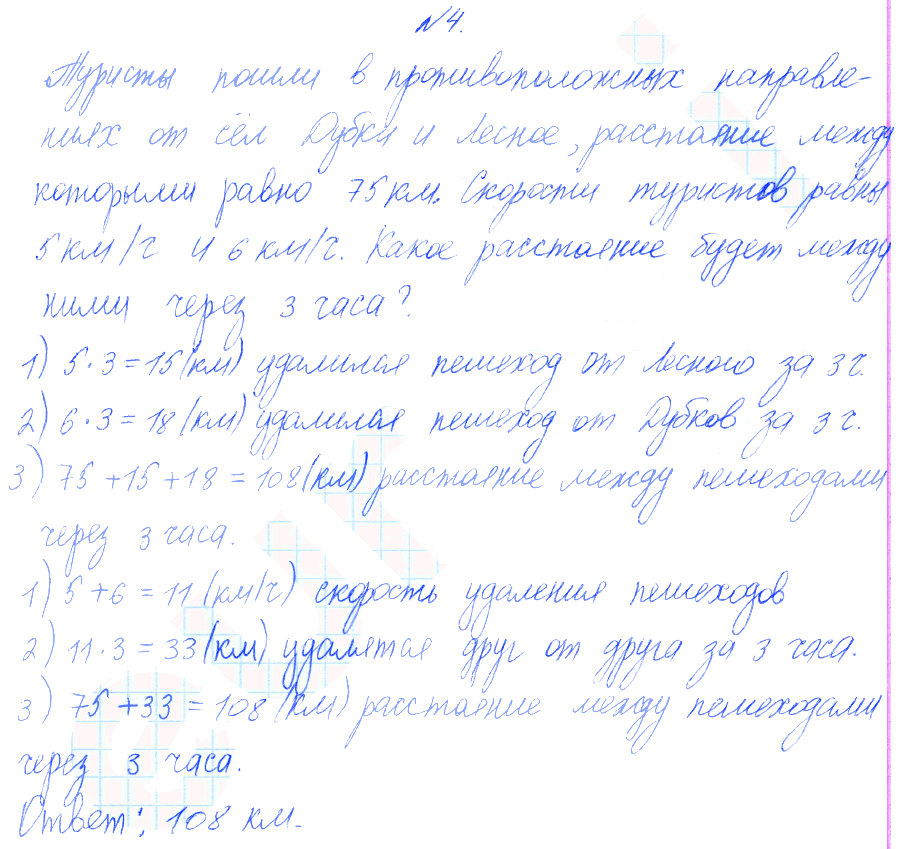 №4.
Туристы пошли в противоположных направле-
ниях от сёл Дубки и Лесное, расстояние между
которыми равно 75 км. Скорости туристов равны
5 км/ч и 6 км/ч. Какое расстояние будет между
ними через 3 часа?
1) 5·3=15(км) удалился пешеход от Лесного за 3 ч.
2) 6·3=18(км) удалился пешеход от Дубков за 3 ч.
3) 75+15+18=108(км) расстояние между пешеходами
через 3 часа.
1) 5+6=11(км/ч) скорость удаления пешеходов
2) 11·3=33(км) удалятся друг от друга за 3 часа.
3) 75+33=108(км) расстояние между пешеходами
через 3 часа.
Ответ: 108 км.